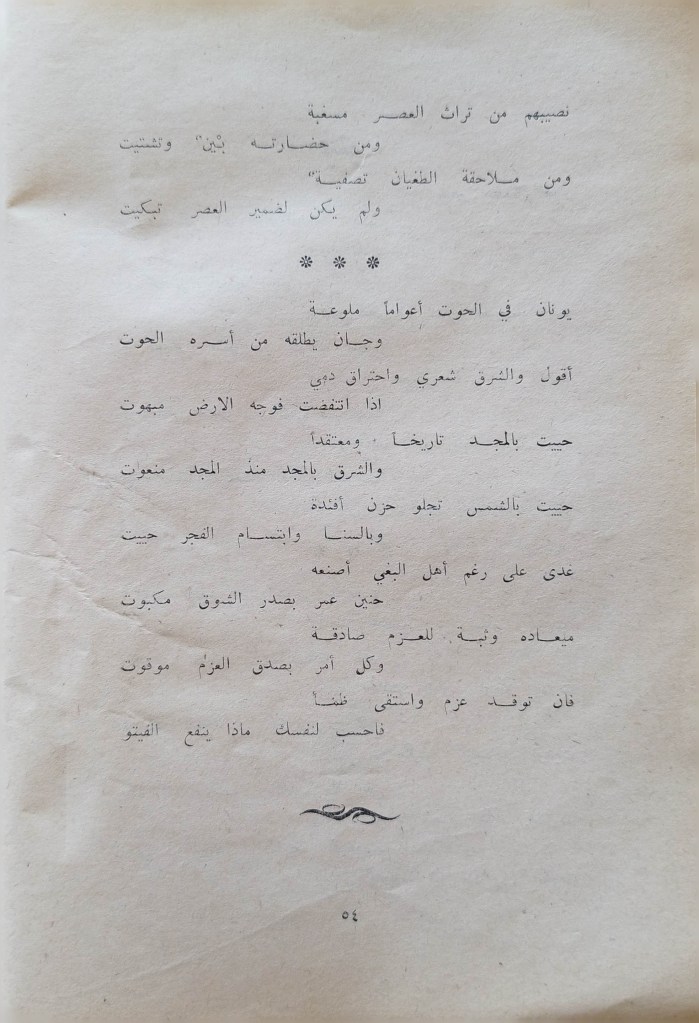 نصيبهم من تراث العصر مسغبة
ومن حضارته بْينٌ وتشتيت
ومن ملاحقة الطغيان تصفيةٌ
ولم يكن لضمير العصر تبكيت
* * *
يونان في الحوت أعواماً ملوعة
وحان يطلقه من أسره الحوت
أقول والشرق شعري واحتراق دمي
اذا انتفضت فوجه الارض مبهوت
حييت بالمجد تاريخاً ومعتقداً
والشرق بالمجد منذ المجد منعوت
حييت بالشمس تجلو حزن أفئدة
وبالسنا وابتسام الفجر حييت
غدى على رغم أهل البغي أصنعه
حنين عمر بصدر الشوق مكبوت
ميعاده وثبة للعزم صادقة
وكل أمر بصدق العزم موقوت
فان توقد عزم واستقى ظمأ
فاحسب لنفسك ماذا ينفع الفيتو
٥٤